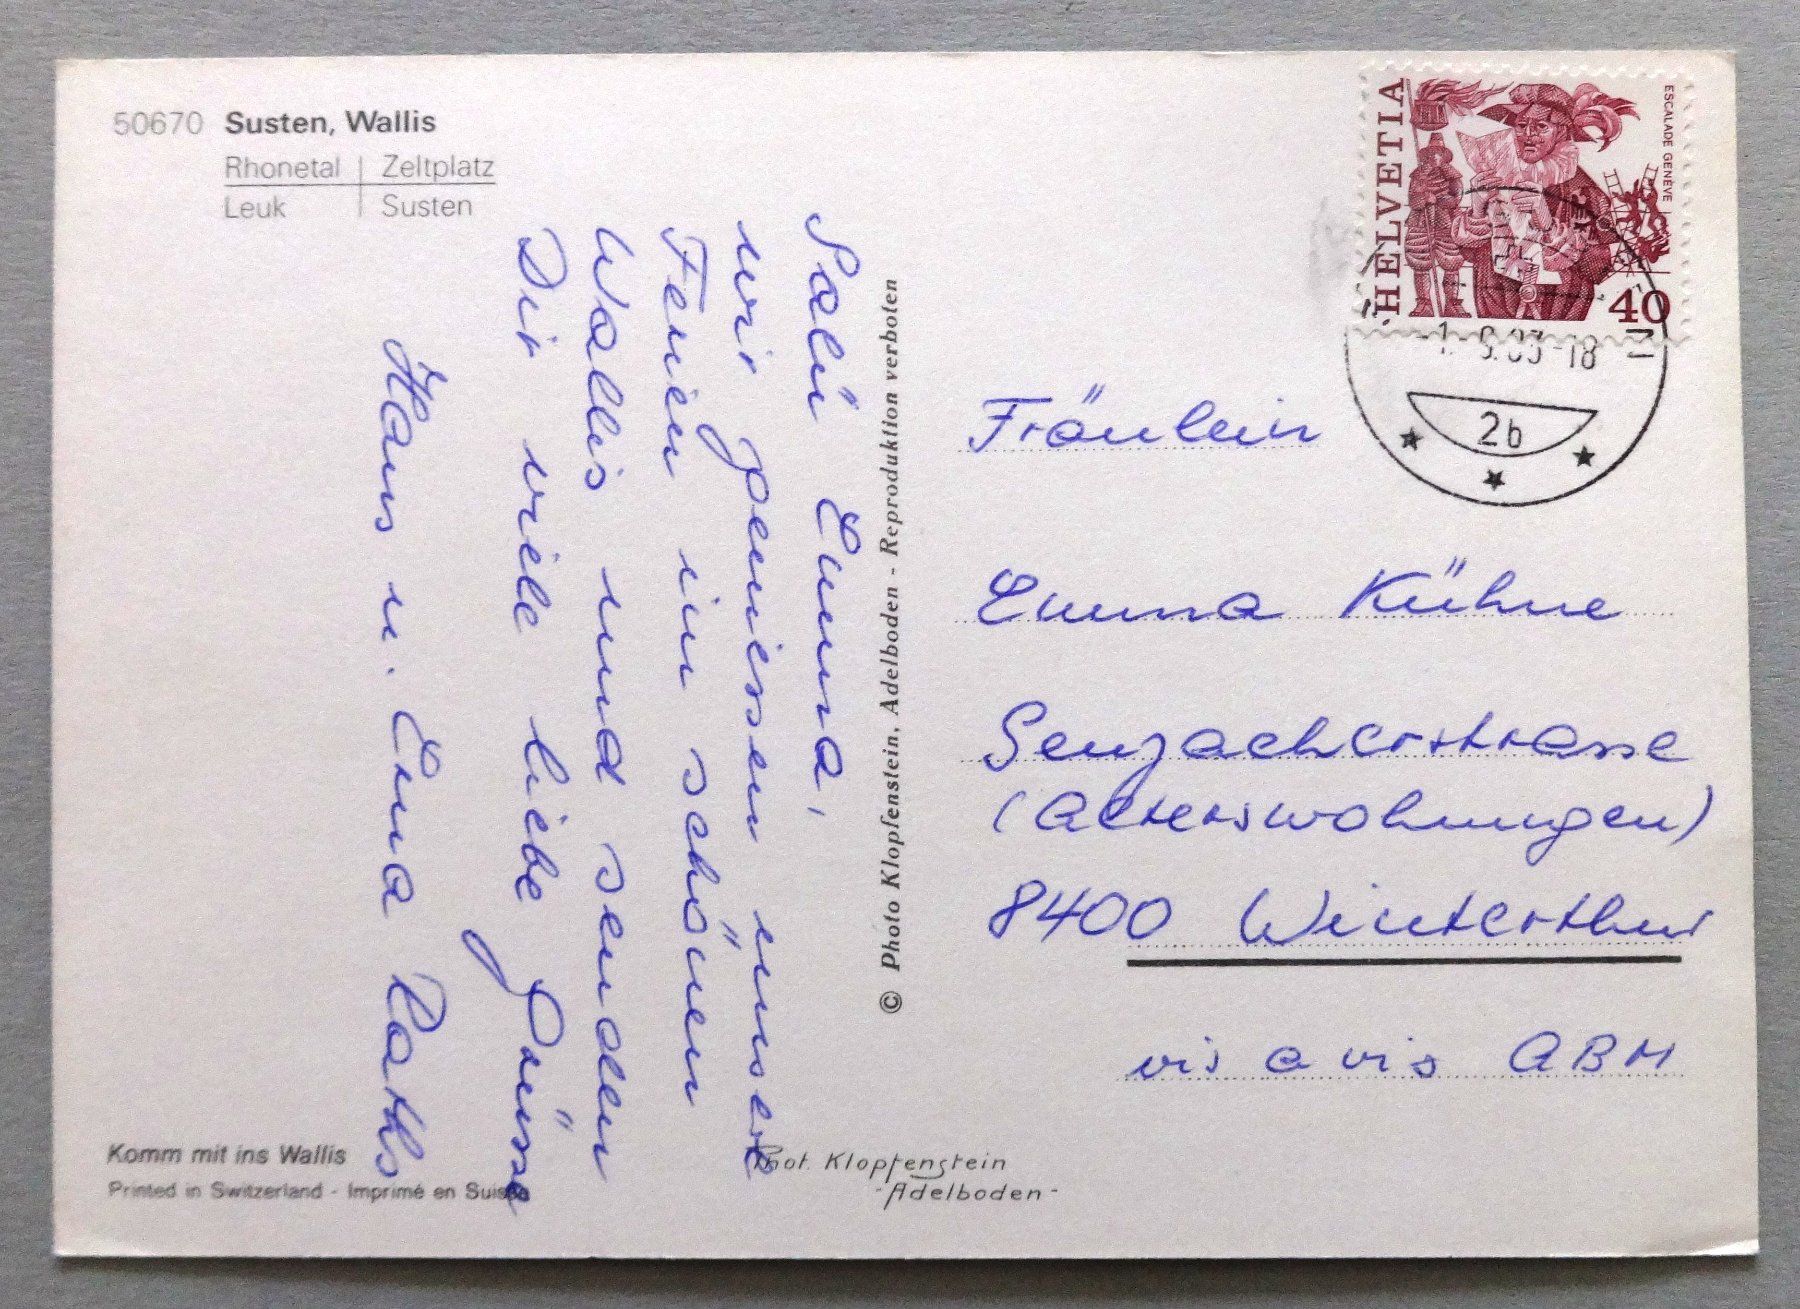 50670 Susten, Wallis
Rhonetal | Zeltplatz
Leuk | Susten
Salü Emma,
wir geniessen unsere
Ferien im schönen
Wallis und senden
Dir viele liebe Grüsse
Hans u. Erna Raths
Komm mit ins Wallis
Printed in Switzerland - Imprimé en Suisse
© Photo Klopfenstein, Adelboden - Reproduktion verboten
Phot. Klopfenstein
- Adelboden -
HELVETIA
ESCALADE GENÈVE
40
-18
2b
Fräulein
Emma Kühne
Seuzacherstrasse
(Alterswohnungen)
8400 Winterthur
vis a vis ABM